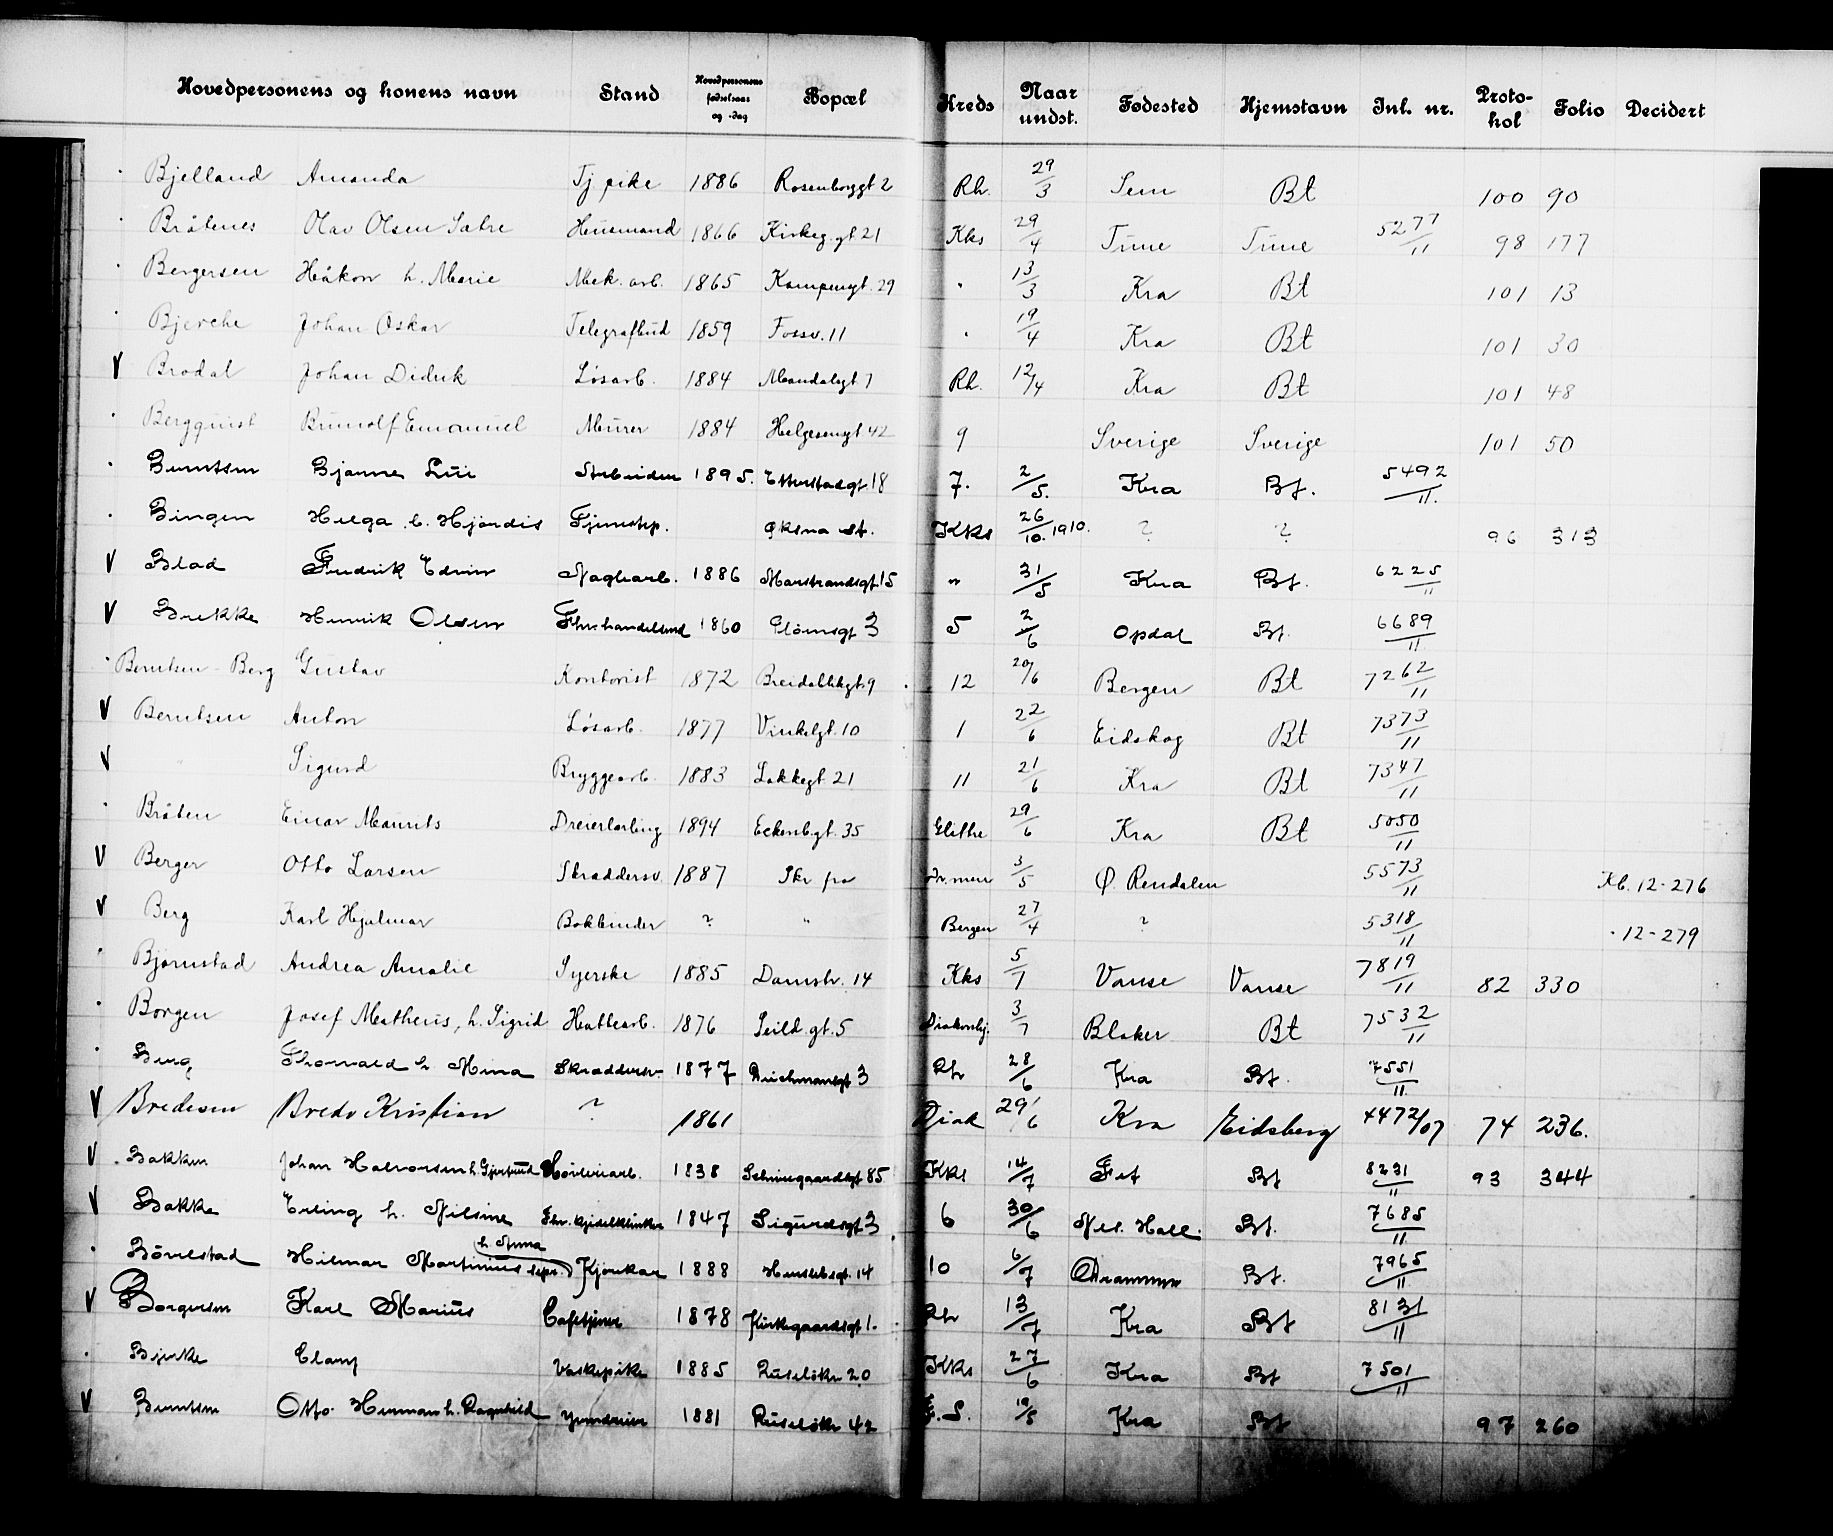 Hovedpersonens og konens navn Stand Hovedpersonens fødselsaar og -dag Bopæl Kreds Naar undst. Fødested Hjemstavn Inl. nr. Protokol Folio Decidert
Bjelland Amanda Tj pike 1886 Rosenborggt 2 Rh. 29/3 Sem Bt 100 90
Bråtenes Olav Olsen Sætre Husmand 1866 Kirkeg.gt 21 Kks 29/4 Tune Tune 5277/11 98 177
Bergersen Håkon h. Marie Mek. arb. 1865 Kampengt. 29 " 13/3 Kra Bt 101 13
Bjerche Johan Oskar Telegrafbud 1859 Fossv. 11 " 19/4 Kra Bt 101 30
V Brodal Johan Didrik Løsarb. 1884 Mandalsgt 7 Rh. 12/4 Kra Bt 101 48
Bergquist Brunolf Emanuel Murer 1884 Helgesensgt 42 9 Sverige Sverige 101 50
Berntsen Bjarne Lui 1895. Etterstadgt. 18 7. 2/5. Kra Bt. 5492/11.
Bingen Helga b. Hjördis Fjernstep. Øksna st. Kks 26/10. 1910. ? ? 96 313
V Blad Fredrik Edvin Naglearb. 1886 Marstrandsgt. 15 " 31/5 Kra Bt. 6225/11
V Brekke Henrik Olsen Fhv. handelsmd 1860 Glömsgt 3 5 2/6 Opdal Bt. 6689/11
Berntsen-Berg Gustav Kontorist 1872 Breidablikgt. 9 12 20/6 Bergen Bt 7262/11
V Berntsen Anton Løsarb. 1877 Vinkelgt. 10 1 22/6 Eidskog Bt 7373/11
V " Sigurd Bryggearb. 1883 Lakkegt. 21 11 21/6 Kra Bt 7347/11
Bråten Einar Maurits Dreierlærling 1894 Eckersb.gt. 35 Glittre 29/6 Kra Bt 5050/11
V Berger Otto Larsen Skræddersv. 1887 Skr fra Dr.men 3/5 Ø. Rendalen 5573/11 Kb. 12-276
V Berg Karl Hjalmar Bokbinder ? " Bergen 27/4 ? 5318/11 " 12-279
Bjørnstad Andrea Amalie Syerske 1885 Damstr. 14 Kks 5/7 Vanse Vanse 7819/11 82 330
Borgen Josef Matheus, h. Sigrid Hattearb. 1876 Seild.gt. 5 Diakonhj. 3/7 Blaker Bt 7532/11
Berg Thorvald h. Mina Skræddersv. 1877 Deichmansgt 3 Rh 28/6 Kra Bt. 7551/11
V Bredesen Bredo Kristian ? 1861 Diak 29/6 Kra Eidsberg 4472/07 74 236.
V Bakken Johan Halvorsen h. Gjertrud 1838 Schweigaardsgt 85 Kks 14/7 Fet Bt 8231/11 93 344
V Bakke Erling h. Nilsine Fhv. kjedelklinker 1847 Sigurdsgt 3 6 30/6 Nes. Hall. Bt. 7685/11
Börrestad Hilmar Martinius h. Anna sepr. Kjørekar 1888 Herslebsgt. 14 10 6/7 Drammen Bt. 7965/11
V Borgersen Karl Marius Cafetjener 1878 Kirkegaardsgt 1. Rh 13/7 Kra Bt 8131/11
Bjerke Clary Vaskepike 1885 Ruseløkv 20 Kks 27/6 Kra Bt 7501/11
V Berntsen Otto Herman h. Ragnhild 1881 Ruseløkv 42 F.S. 19/5 Kra Bt 97 260